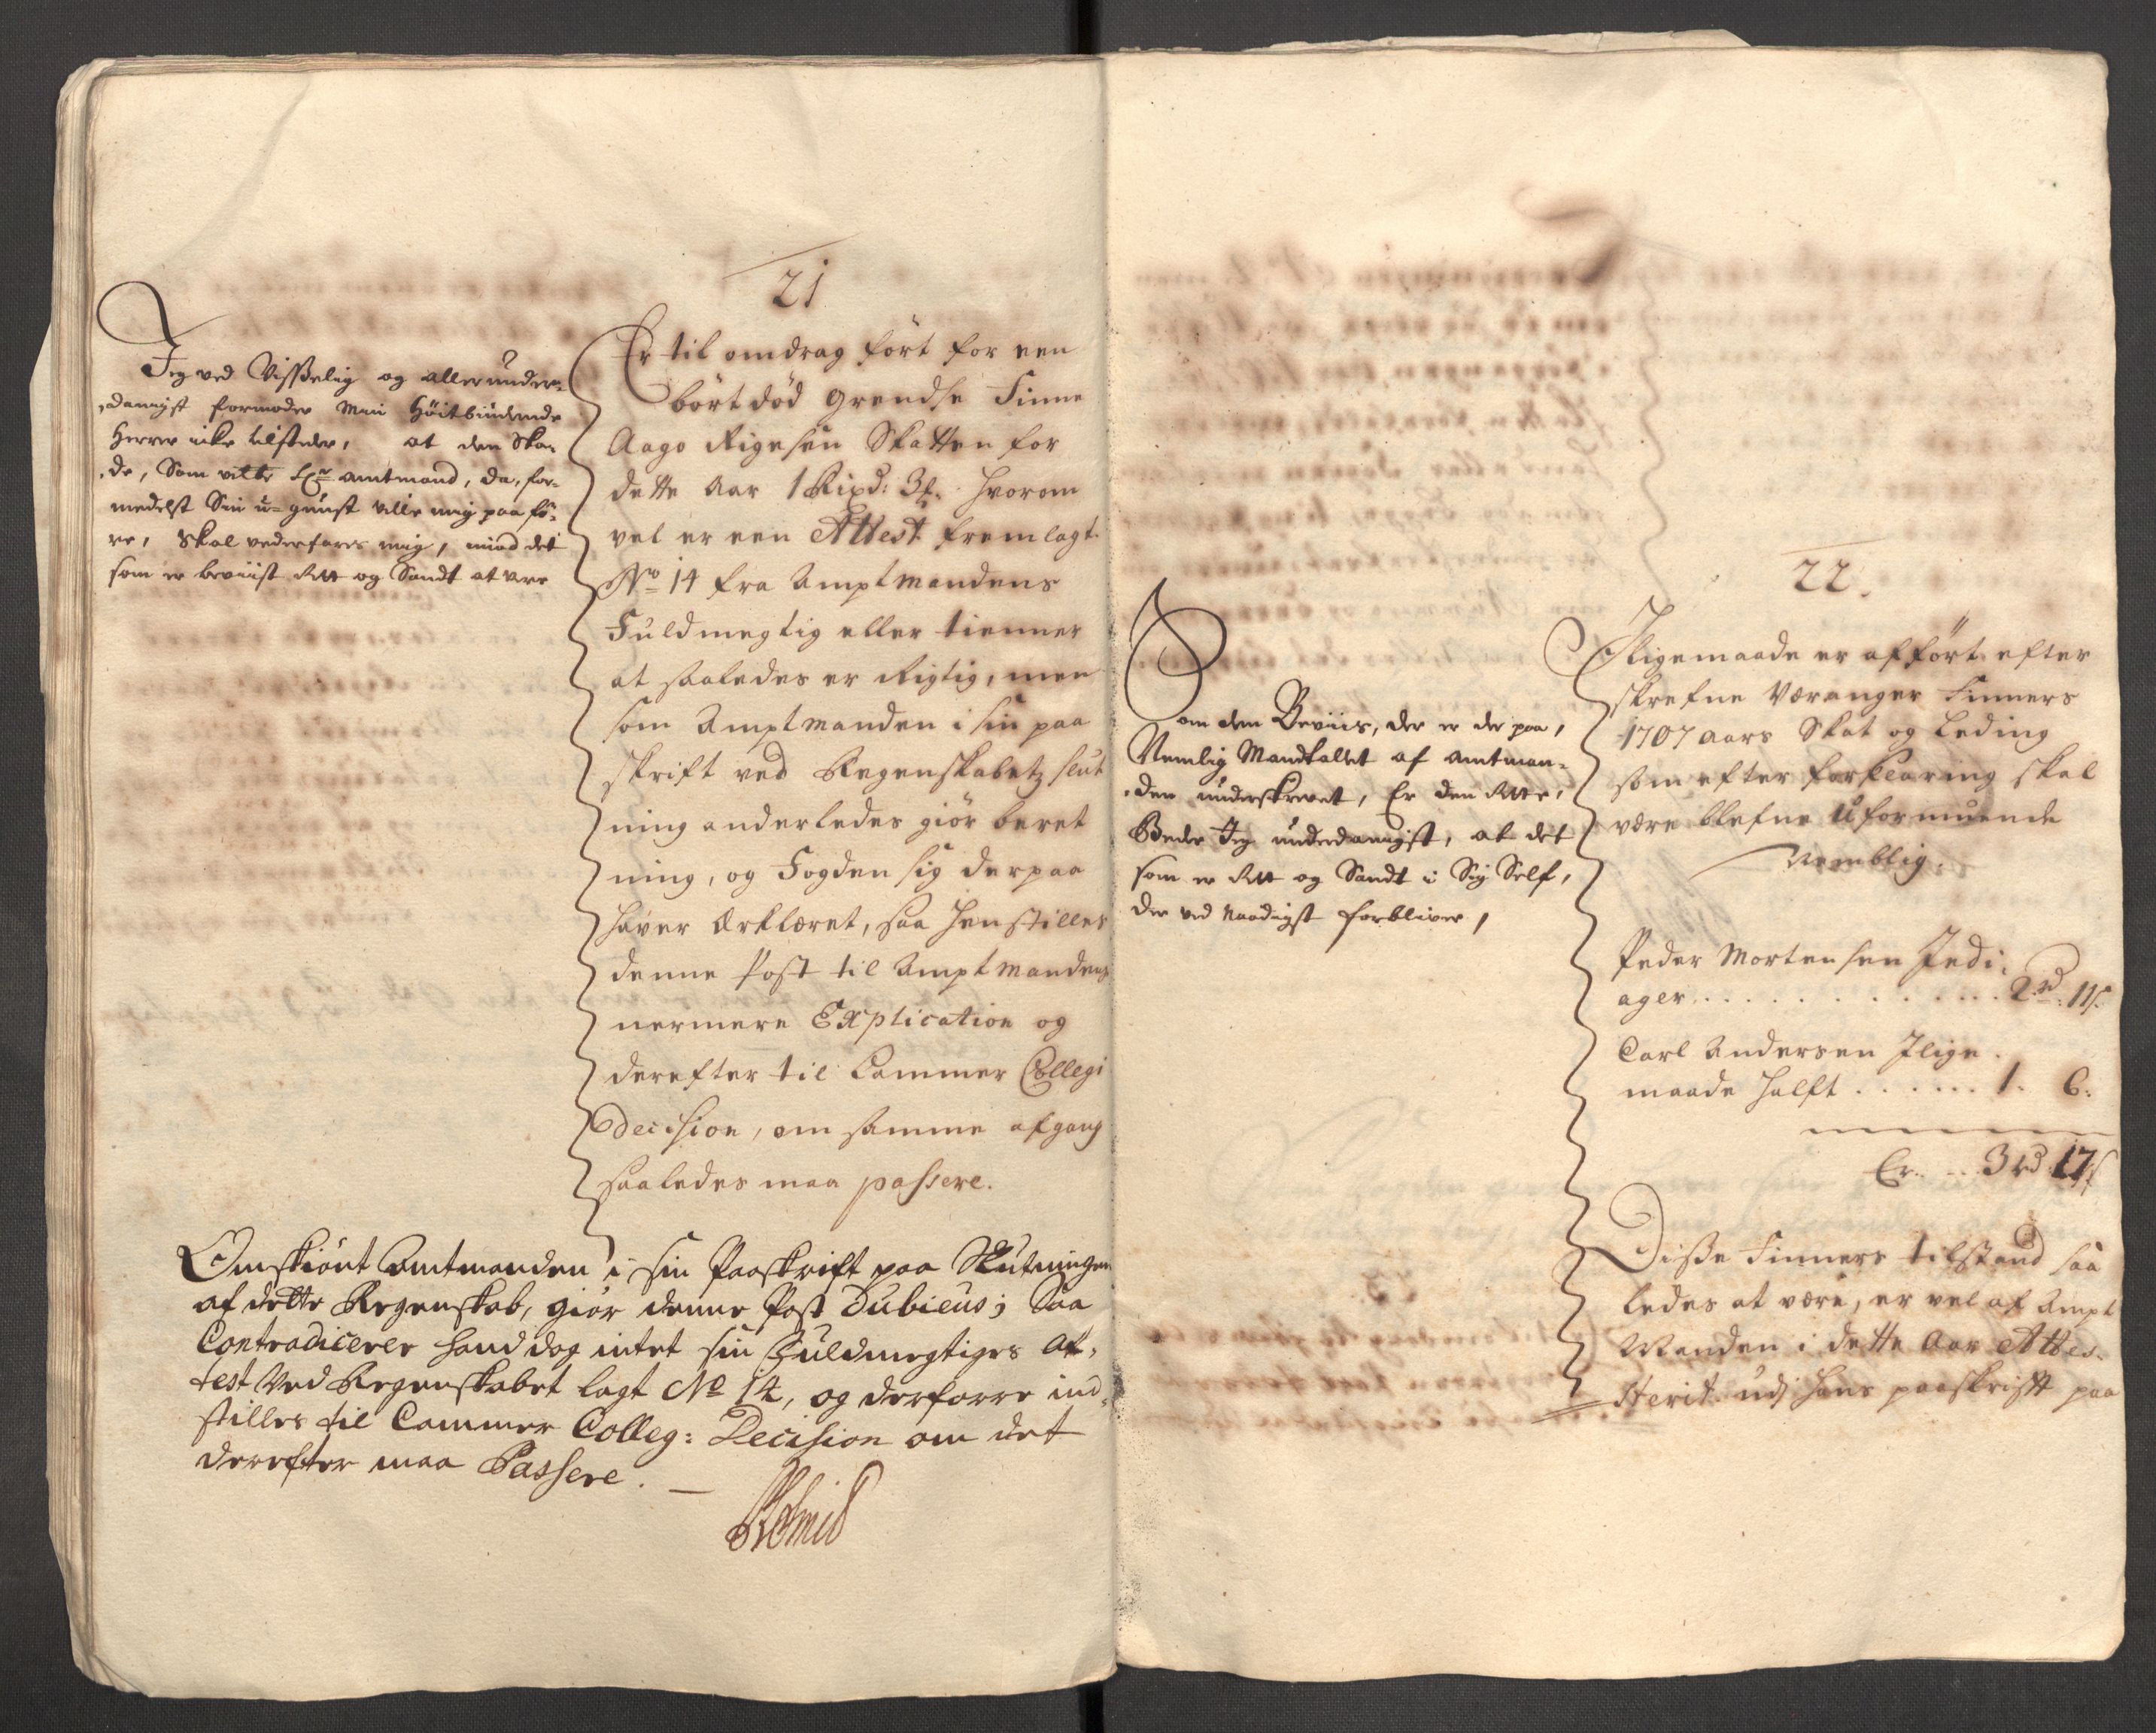 21
Jeg ved Visselig og allerunder-
danigst formoder Mine Höitbiudende
Herrer icke tilsteder, at den Ska-
de, Som vilte Hr amtmand, da, for-
medelst Sin u-gunst ville mig paa fö-
re, skal vederfares mig, mod det
som er beviist Rett og Sandt at vere
Er til omdrag fört for een
bortdöd Grendse Finne
Aago Rigesen Skatten for
dette Aar 1 Rixd: 3 s. hvorom
vel er een Attest fremlagt
No 14 fra Amptmandens
Fuldmegtig eller tienner
at saaledes er Rigtig, men
som Amptmanden i sin paa
skrift ved Regenskabetz slut
ning anderledes giör beret
ning, og Fogden sig derpaa
haver Erklæret, saa henstilles
denne Post til Amptmandens
nermere Explication og
derefter til Cammer Collegi
Decision, om samme afgang
saaledes maa passere.
Omskiönt Amtmanden i sin Paaskrift paa Slutningen
af dette Regenskab, giör denne Post Dubieus; Saa
Contradicerer hand dog intet sin Fuldmegtiges At-
test Ved Regenskabet lagt No 14, og derforre ind-
stilles til Cammer Colleg: Decision om det
derefter maa Passere. —
22.
om dem Beviis, der er der paa,
Nemlig Mandtallet af amtman-
den underskrevet, Er den Rette,
Beder Jeg underdanigst, at det
som er Rett og Sandt i Sig Self,
der ved Naadigst forbliver,
Iligemaade er afført efter
skrefne Væranger Finners
1707 Aars Skat og Leding
som efter forklaring skal
være blefne Uformuende
Nemblig.
Peder Mortensen Fedi:
ager . . . . . . . . . . 2 rd. 11 s.
Carl Andersen Ilige
maade halft . . . . . . 1. 6.
Er. . . 3 rd 17 s
Disse Finners tilstand saa
ledes at være, er vel af Ampt
Manden i dette Aar Attes-
sterit udj hans paaskrifft paa